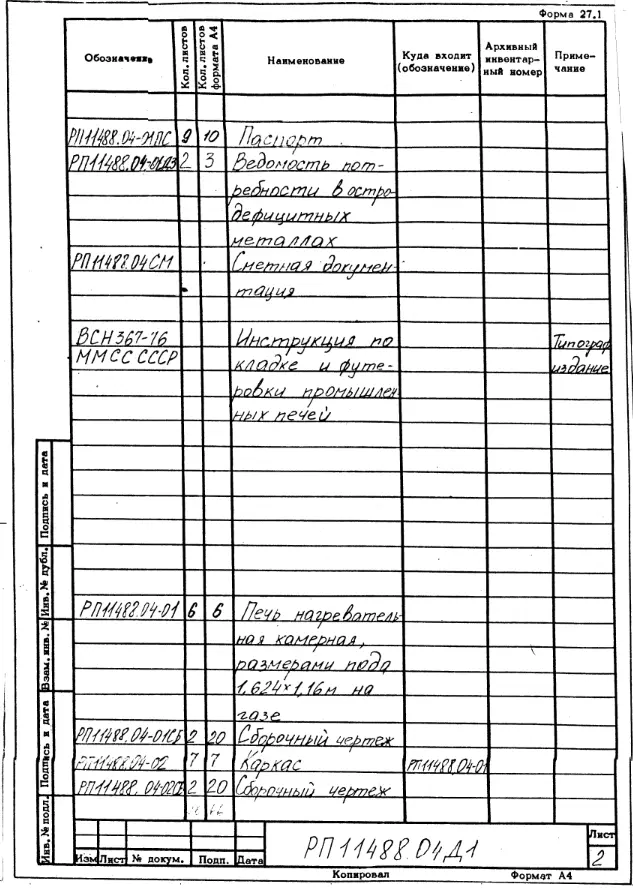 Форма 27.1
Обозначение
Кол. листов
Кол. листов формата А4
Наименование
Куда входит (обозначение)
Архивный инвентарный номер
Примечание
РП11488.04-01ПС 9 10 Паспорт
РП11488.04-01Д3 2 3 Ведомость пот-
ребности в остро-
дефицитных
металлах
РП11488.04СМ Сметная докумен-
тация
ВСН367-76 Инструкция по Типограф
ММСС СССР кладке и футе- издание
ровки промышлен-
ных печей
РП11488.04-01 6 6 Печь нагреватель-
ная камерная,
размерами пода
1,624×1,16м на
газе
РП11488.04-01СБ 2 20 Сборочный чертеж
РП11488.04-02 7 7 Каркас РП11488.04-01
РП11488.04-02СБ 2 20 Сборочный чертеж
Подпись и дата
Инв. № дубл.
Взам. инв. №
Подпись и дата
Инв. № подл.
Изм Лист № докум. Подп. Дата
РП11488.04Д1
Лист
2
Копировал Формат А4